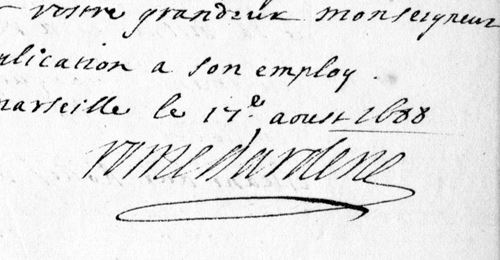 vostre grandeur monseigneur
plication a son employ.
marseille le 17e aoust 1688
romedardene